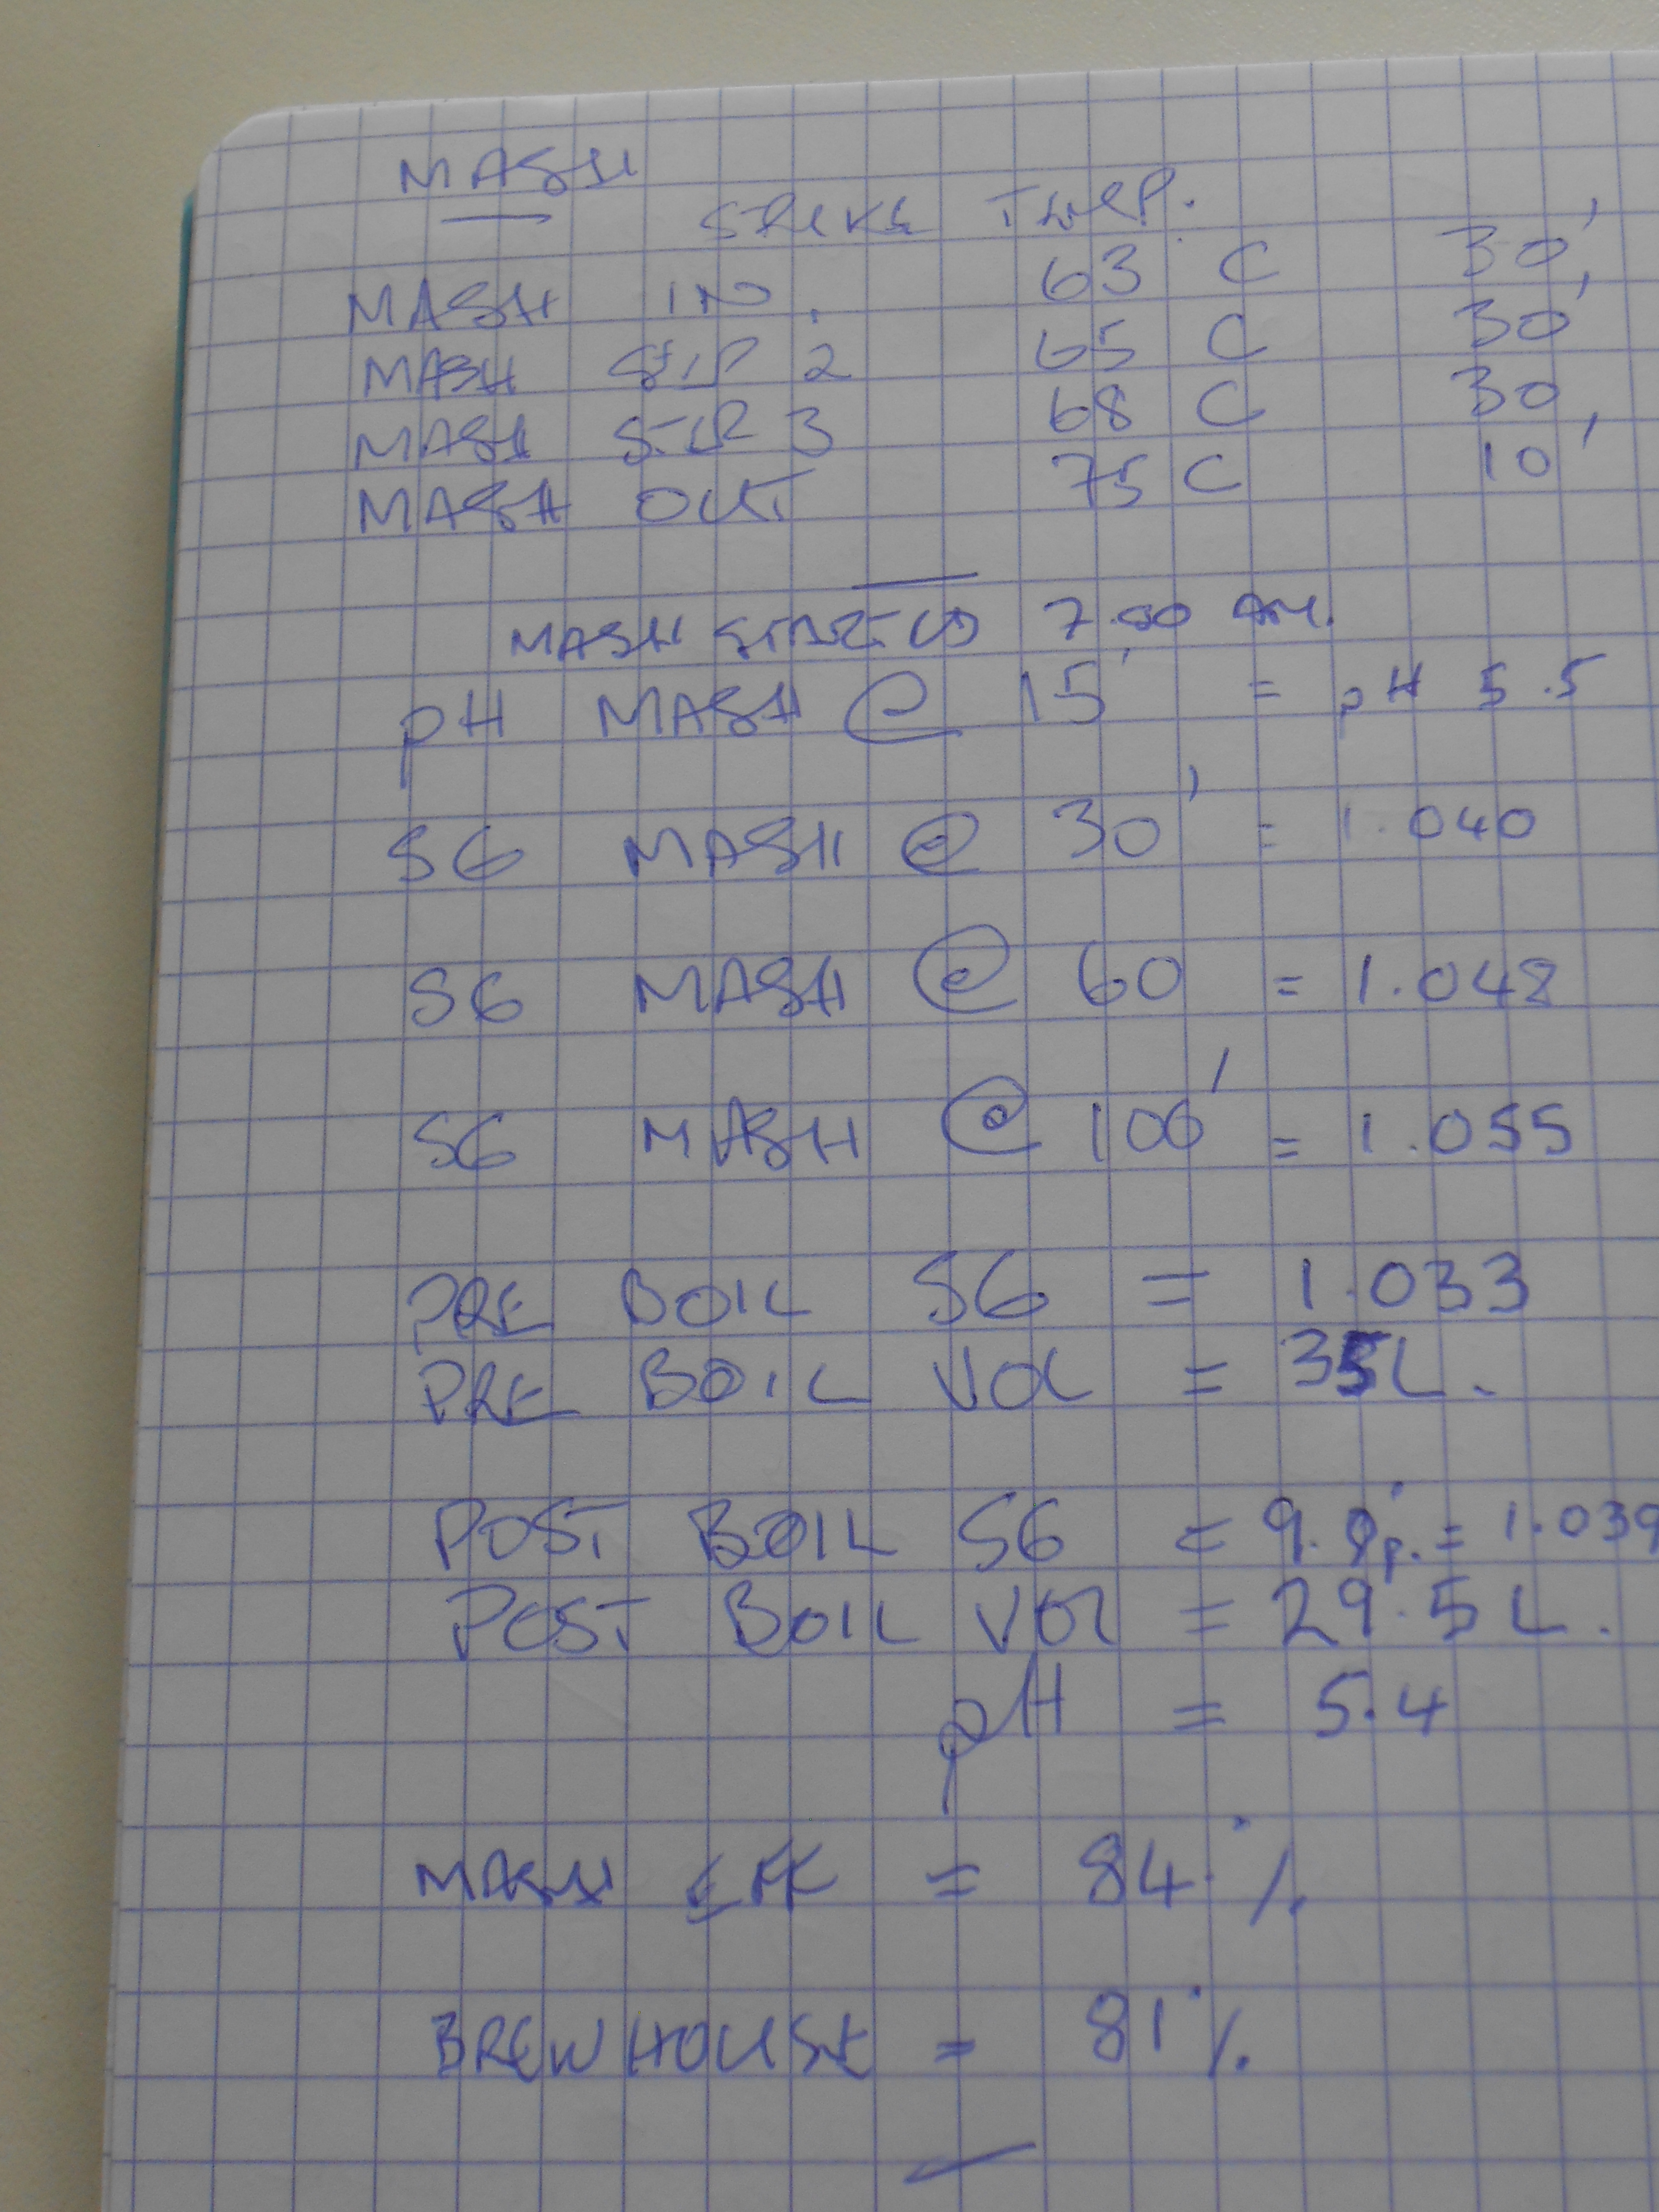 MASH
STRIKE TEMP.
MASH IN. 63 C 30'
MASH STEP 2 65 C 30'
MASH STEP 3 68 C 30'
MASH OUT 75 C 10'
MASH STARTED 7.50 AM.
pH MASH @ 15' = pH 5.5
SG MASH @ 30' = 1.040
SG MASH @ 60 = 1.048
SG MASH @ 100' = 1.055
PRE BOIL SG = 1.033
PRE BOIL VOL = 35L.
POST BOIL SG = 9.8°p. = 1.039
POST BOIL VOL = 29.5 L.
pH = 5.4
MASH EFF = 84 %
BREWHOUSE = 81 %